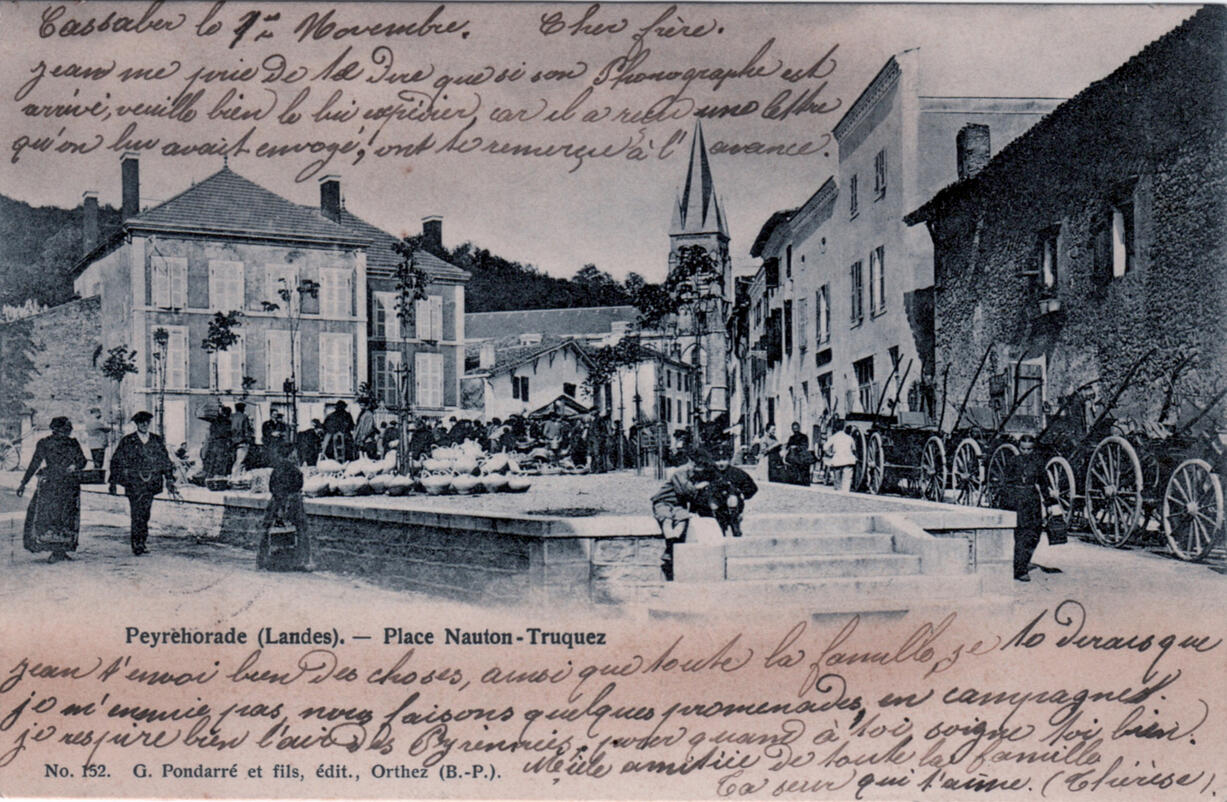 Cassaber le 1er Novembre. Cher frère.
Jean me prie de te dire que si son Phonographe est
arrivé, veuille bien le lui expédier, car il a reçu une lettre
qu'on lui avait envoyé, ont te remerçie à l'avance.
Peyrehorade (Landes). — Place Nauton-Truquez
Jean t'envoi bien des choses, ainsi que toute la famille, je te dirais que
je m'ennuie pas, nous faisons quelques promenades, en campagnes.
je respire bien l'air des Pyrennés, pour quand à toi soigne toi bien.
No. 152. G. Pondarré et fils, édit., Orthez (B.-P.).
Mille amitiée de toute la famille
Ta seur qui t'aime. (Thérèse).